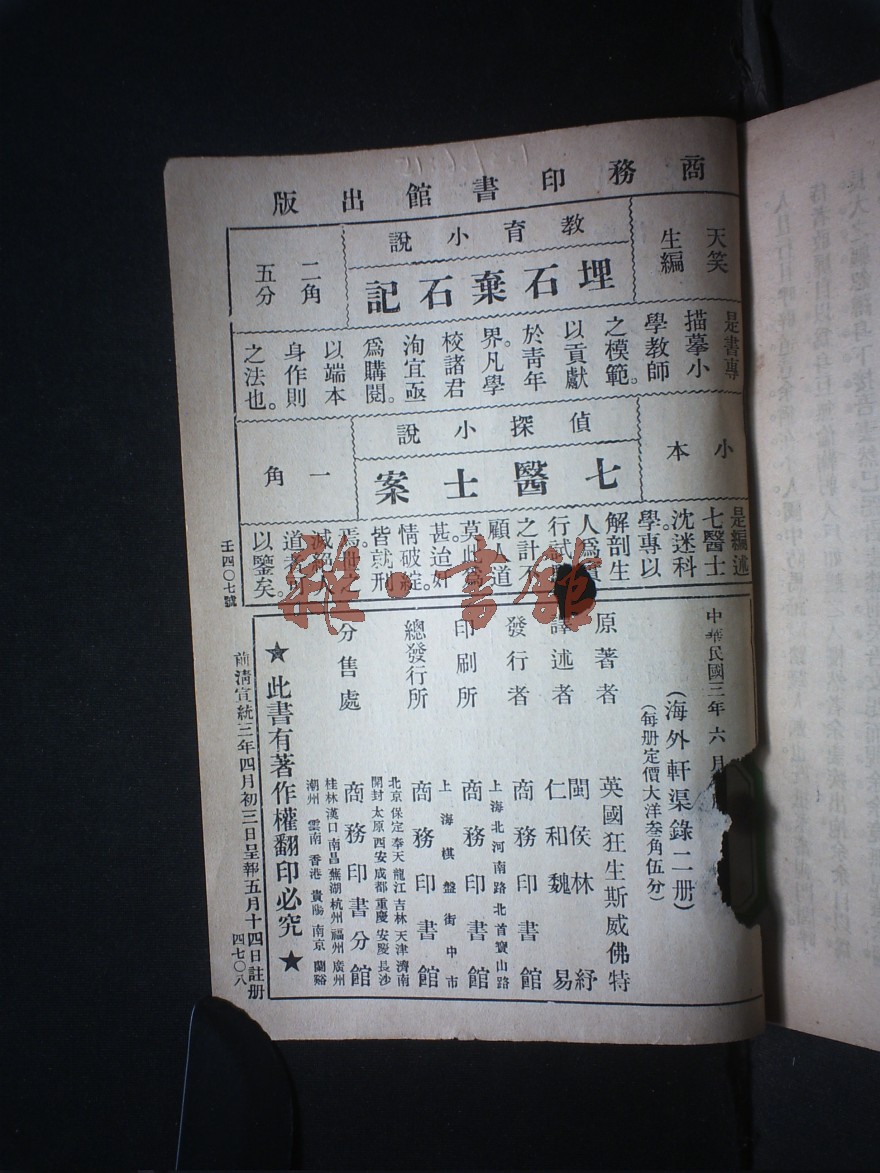 商務印書館出版
天笑
生編
教育小說
埋石棄石記
二角
五分
是書專
描摹小
學教師
之模範。
以貢獻
於青年
界。凡學
校諸君
洵宜亟
爲購閱。
以端本
身作則
之法也。
小本
偵探小說
七醫士案
一角
是編述
七醫士
沈迷科
學。專以
解剖生
人爲實
行試
之計。不
顧人道
莫此爲
甚。迨奸
情破綻。
皆就刑
焉。世
滅絕人
道者
以鑒矣。
壬四〇七號
中華民國三年六月
(海外軒渠錄二册)
(每册定價大洋叁角伍分)
原著者 英國狂生斯威佛特
譯述者 閩侯林紓
仁和魏易
發行者 商務印書館
上海北河南路北首寶山路
印刷所 商務印書館
上海棋盤街中市
總發行所 商務印書館
北京 保定 奉天 龍江 吉林 天津 濟南
開封 太原 西安 成都 重慶 安慶 長沙
分售處 商務印書分館
桂林 漢口 南昌 蕪湖 杭州 福州 廣州
潮州 雲南 香港 貴陽 南京 蘭谿
★此書有著作權翻印必究★
前清宣統三年四月初三日呈報五月十四日註册
四七〇八
雜·書館